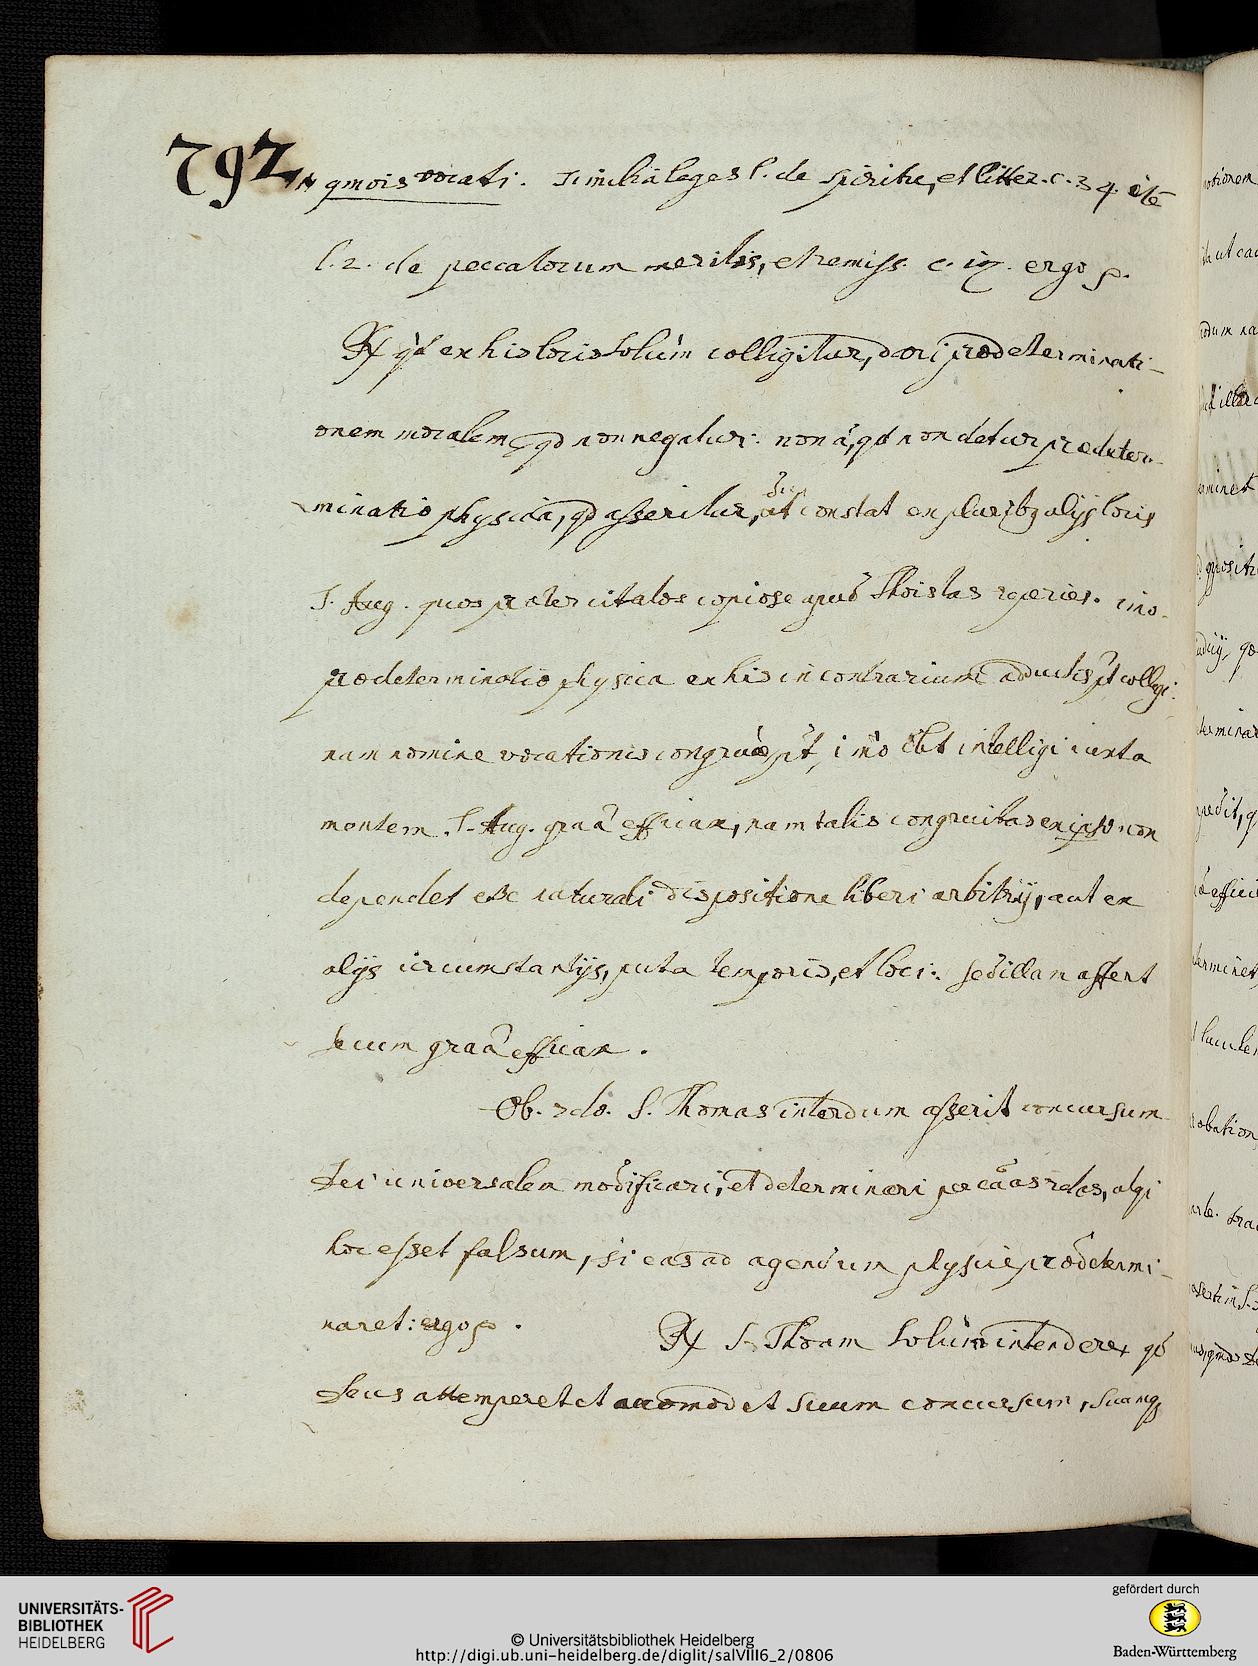 792
qmois vocati. Similia leges l. de spiritu, et litter. c. 34. ite
l. 2. de peccatorum meritis, et remiss. c. 17. ergo p.
R qd ex his locis solum colligitur, dari praedeterminati-
onem moralem, qd non negatur: non a, qd non detur praedeter-
minatio physica, qd asseritur, ut constat ex pluribq alijs locis
S. Aug. quos praeter citatos copiose apud Thoistas reperies. imo
praedeterminatio physica ex his in contrarium adductis pt colligi:
nam nomine vocationis congruae pt, imo debt intelligi iuxta
mentem S. Aug. graa efficax, nam talis congruitas ex ipso non
dependet ex naturali dispositione liberi arbitrij, aut ex
alijs circumstantijs, puta temporis, et loci: sed illam affert
secum graa efficax.
Ob. 2do. S. Thomas interdum asserit concursum
Dei universalem modificari, et determinari per caas 2das, atqi
hoc esset falsum, si eas ad agendum physice praedetermi-
naret: ergo p.
R S. Thoam solum intendere, qd
Deus attemperet et accomodet suum concursum, suamq
UNIVERSITÄTS-
BIBLIOTHEK
HEIDELBERG
© Universitätsbibliothek Heidelberg
http://digi.ub.uni-heidelberg.de/diglit/salVIII6_2/0806
gefördert durch
Baden-Württemberg